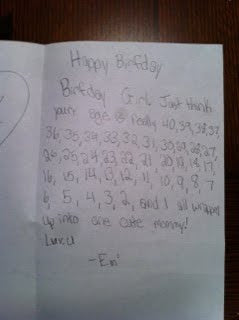 Happy Birfday
Birfday Girl Just think
your age is really 40, 39, 38, 37,
36, 35, 34, 33, 32, 31, 30, 29, 28, 27,
26, 25, 24, 23, 22, 21, 20, 19, 18, 17,
16, 15, 14, 13, 12, 11, 10, 9, 8, 7
6, 5, 4, 3, 2, and 1 all wrapped
up into one cute mommy!
Luv. U
-Em